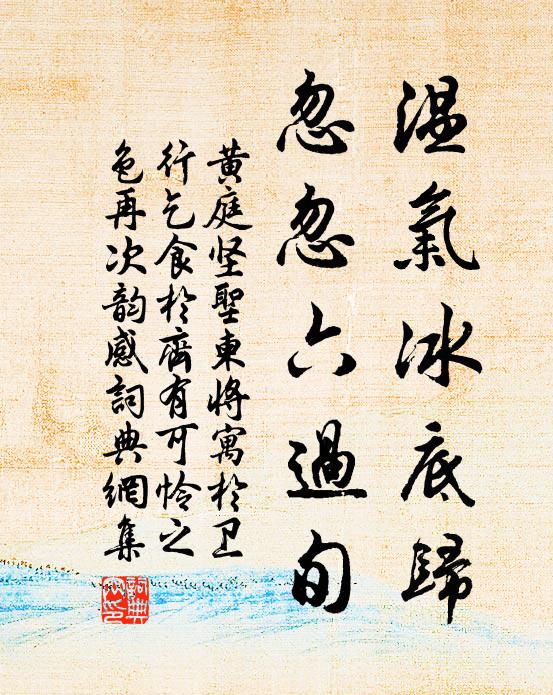 温氣冰底歸
忽忽六過旬
黄庭坚聖東將寓於卫
行乞食於齊有可怜之
色再次韵感詞典網集